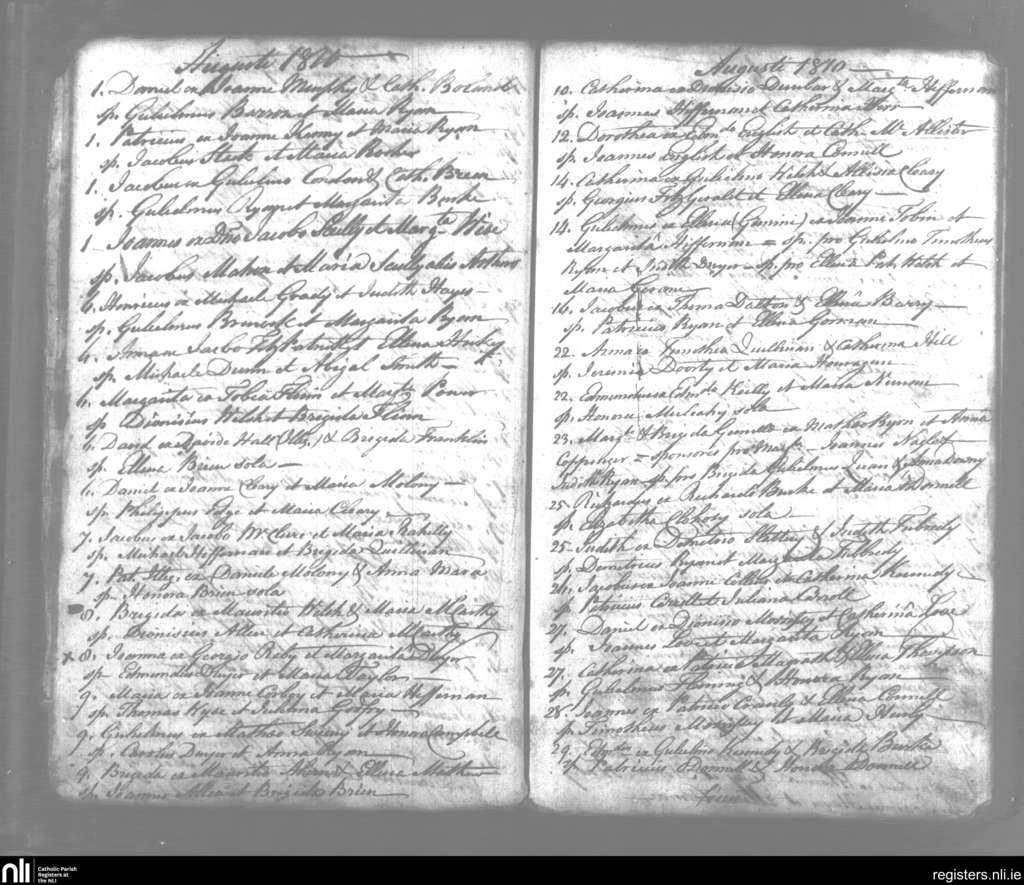 Augusti 1810
1. Daniel ex Joanne Murphy & Cath. Boland
sp. Gulielmus Barron et Maria Ryan
1. Patricius ex Joanne Kenny et Maria Ryan
sp. Jacobus Slack et Maria
1. Jacobus ex Gulielmo Condon & Cath. Breen
sp. Gulielmus Ryan et Margarita Burke
1 Joannes ex Dno Jacobo Scully et Margta Wise
sp. Jacobus Mahon et Maria Scully alias
6. Henricus ex Michaele Grady et Judith Hayes
sp. Gulielmus et Margarita Ryan
4. Anna ex Jacobo FitzPatrick et Ellena
sp. Michaele Dunn et Abigal Smith
6. Margarita ex Tobia Flinn et Margta Power
sp Dionisius Welsh et Brigida Flinn
6. David ex Davide Hall (Illeg.) & Brigida Franklin
sp. Ellena Brien sola
6. Daniel ex Joanne Cleary et Maria Molony
sp. Philippus Page et Maria Cleary
7. Jacobus ex Jacobo McClure et Maria
sp. Michael Heffernan et Brigida Quillinan
7. Pat. Illeg. ex Daniele Molony & Anna Mara
sp. Honora Brien sola
8. Brigida ex Mauritio Welsh & Maria McCarthy
sp. Dionisius Allen et Catherina McCarthy
x 8. Joanna ex Georgio Raby et Margarita Dwyer
sp Edmundus Dwyer et Maria Taylor
9. Maria ex Joanne Corboy et Maria Heffernan
sp. Thomas Wyse et Juliana
9. Gulielmus ex Matheo Sweeny et Honora Campbell
sp. Carolus Dwyer et Anna Ryan
9. Brigida ex Mauritio Ahern & Ellena Mathew
sp. Joannes Allen et Brigida Brien
Augusti 1810
10. Catherina ex Dionisio Dunbar & Margta Heffernan
sp. Joannes Heffernan et Catherina
12. Dorothea ex Edmdo English et Cath. McAllister
sp. Joannes English et Honora Connell
14. Catherina ex Gulielmo Welsh & Allisia Cleary
sp. Georgius FitzGerald et Ellena Cleary
14. Gulielmus et Ellena (Gemini) ex Joanne Tobin et
Margarita Heffernan = sp. pro Gulielmo Timotheus
Ryan et Judith Dwyer - sp. pro Ellena Pat. Welsh et
Maria
16. Jacobus ex Thoma Dalton & Ellena Barry
sp. Patricius Ryan et Ellena Gorman
22. Anna ex Timothea Quillinan & Catherina Hill
sp. Jeremia Doorty et Maria
22. Edmundus ex Edmdo Reilly et Maria
sp. Honora Mulcahy sola
23. Margta & Brigida Gemellae ex Matheo Ryan et Anna
Coppinger = sponsores pro Margta Joannes Nagle et
Judith Ryan sp. pro Brigida Gulielmus Quan & Anna Downy
25 Richardus ex Richardo Burke et Maria ODonnell
sp. Elizabetha Clohosy sola
25. Judith ex Demetrio Slattery & Judith
sp. Demetrius Ryan et Margarita
26. Jacobus ex Joanne Collins et Catherina Kennedy
sp Patricius Carroll et Juliana Carroll
27. Daniel ex Dionisio et Catherina Love
sp. Joannes Love et Margarita Ryan
27. Catherina ex Patricio Magrath & Ellena Thompson
sp. Gulielmus Fleming & Honora Ryan
28. Joannes ex Patricio Crowly & Ellena Connell
sp Timotheus et Maria
29. Edmdus ex Gulielmo Kennedy & Brigida Burke
sp. Patricius ODonnell & Honora ODonnell
nli
Catholic Parish
Registers at
the NLI
registers.nli.ie